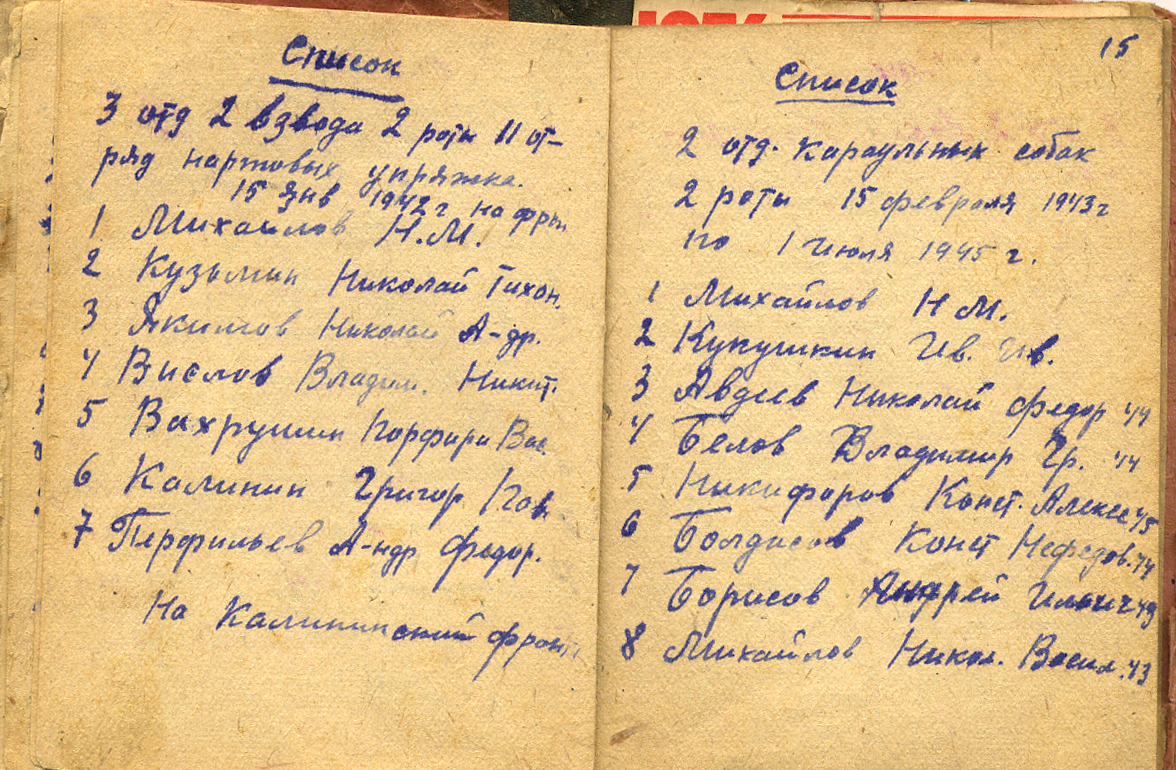 Список
3 отд 2 взвода 2 роты 11 от-
ряд нартовых упряжка.
15 янв 1942 г на фрон
1 Михайлов Н.М.
2 Кузьмин Николай Тихон.
3 Якимов Николай А-др.
4 Вислов Владим. Никит.
5 Вахрушин Порфири Вас.
6 Калинин Григор
7 Перфильев А-ндр Федор.
На Калининский фронт
15
Список
2 отд. караульных собак
2 роты 15 февраля 1943 г
по 1 Июля 1945 г.
1 Михайлов Н М.
2 Кукушкин Ив. Ив.
3 Авдеев Николай Федор 44
4 Белов Владимир Гр. 44
5 Никифоров Конст. Алексе 45
6 Болдисов Конст Нефедов. 44
7 Борисов Андрей Ильич
8 Михайлов Никол. Васил. 43